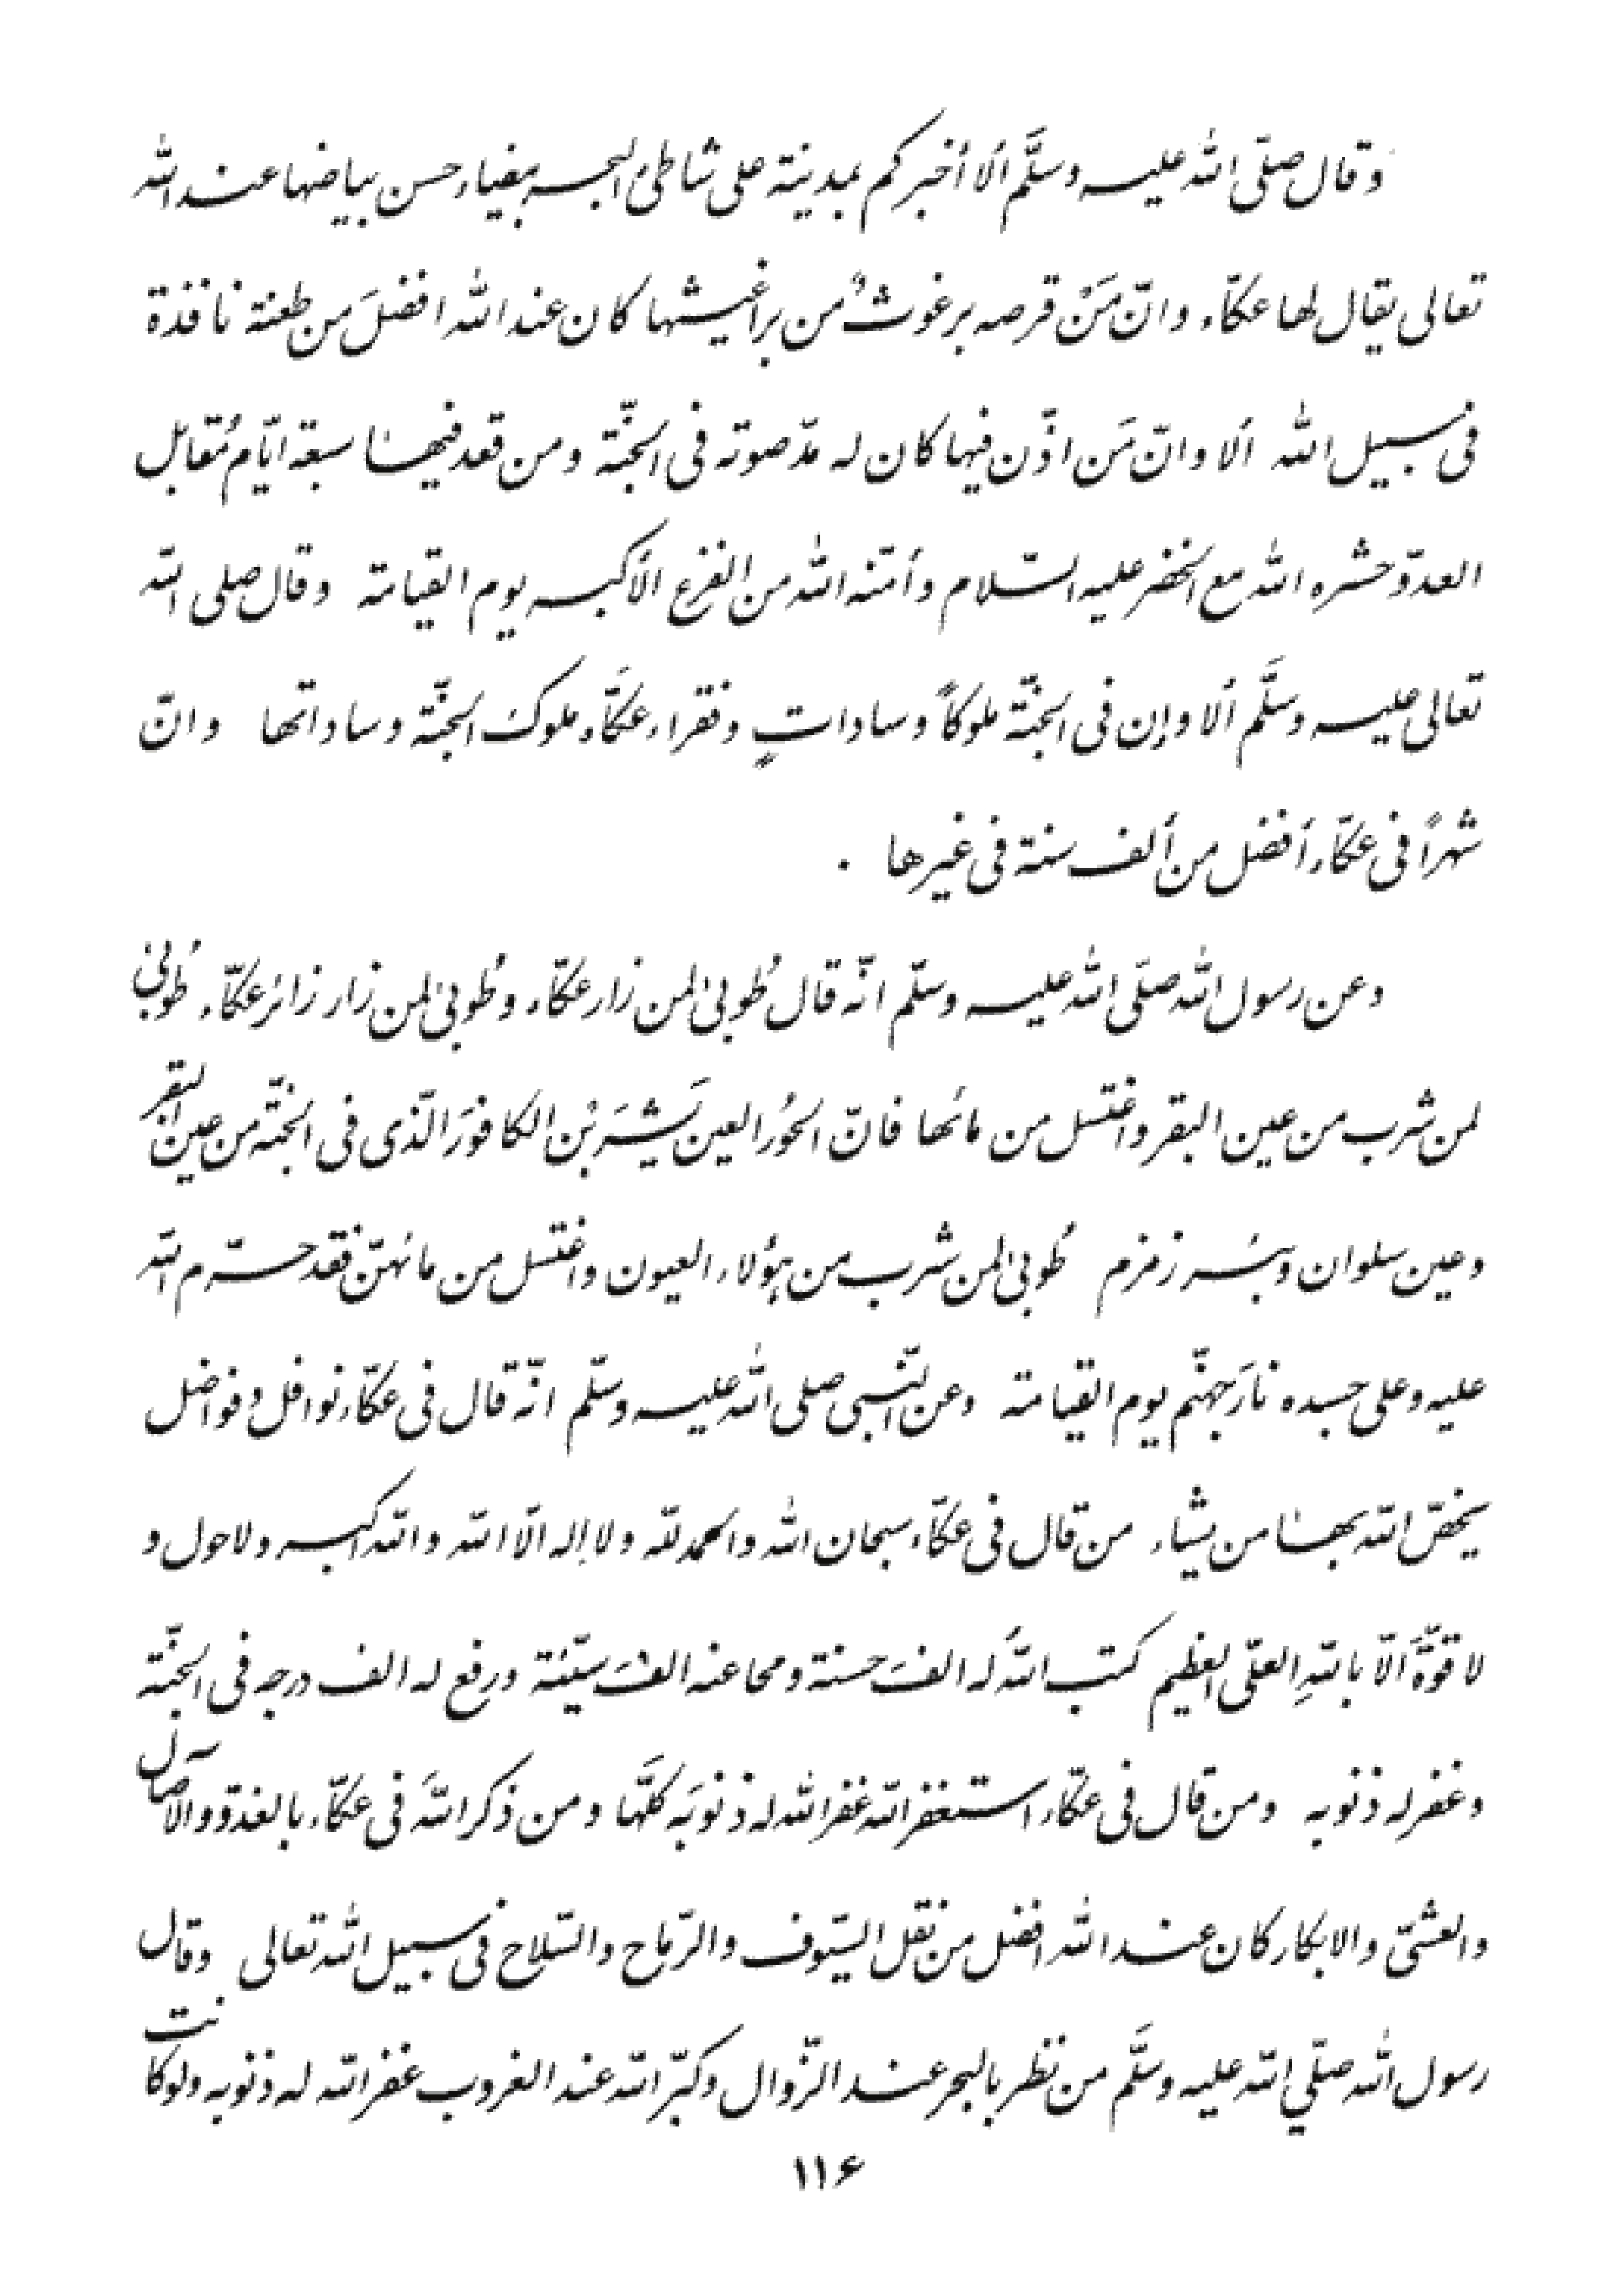 وقال صلّی اللّه علیه وسلَّم ألا أخبرکم بمدینة علی شاطئ البحر بیضاء حسن بیاضها عند اللّه
تعالی یقال لها عکّاء وانّ مَنْ قرصه برغوثٌ من براغیثها کان عند اللّه افضلَ من طعنة نافذة
فی سبیل اللّه ألا وانّ مَن اذّن فیها کان له مدّ صوته فی الجنّة ومن قعد فیها سبعة ایّام مُقابل
العدوّ حشره اللّه مع الخضر علیه السّلام وأمّنه اللّه من الفزع الأکبر یوم القیامة وقال صلی اللّه
تعالی علیه وسلَّم ألا وإن فی الجنّة ملوکاً وساداتٍ وفقراء عکّاء ملوک الجنّة وساداتها وانّ
شهراً فی عکّاء أفضل من ألف سنة فی غیرها .
وعن رسول اللّه صلّی اللّه علیه وسلّم انّه قال طُوبیٰ لمن زار عکّاء وطُوبیٰ لمن زار زائر عکّاء طُوبیٰ
لمن شرب من عین البقر واغتسل من مائها فانّ الحُور العین یَشْرَبْن الکافورَ الّذی فی الجنّة من عین البقر
وعین سلوان وبئر زمزم طُوبیٰ لمن شرب من هؤلاء العیون واغتسل من مائهنّ فقد حرّم اللّه
علیه وعلی جسده نارَ جهنّم یوم القیامة وعن النّبی صلی اللّه علیه وسلّم انّه قال فی عکّاء نوافل وفواضل
یخصّ اللّه بها من یشاء من قال فی عکّاء سبحان اللّه والحمد للّه ولا إله الّا اللّه واللّه اکبر ولا حول و
لا قوّةَ الّا باللّهِ العلیّ العظیم کتب اللّهُ له الفَ حسنة ومحا عنه الفَ سیّئة ورفع له الف درجه فی الجنّة
وغفر له ذنوبه ومن قال فی عکّاء استغفر اللّه غفر اللّه له ذنوبَه کلَّها ومن ذکر اللّهَ فی عکّاء بالغدوّ والآصال
والعشیّ والابکار کان عند اللّه افضل من نقل السّیوف والرّماح والسّلاح فی سبیل اللّه تعالی وقال
رسول اللّه صلّی اللّه علیه وسلَّم من نظر بالبحر عند الزّوال وکبّر اللّه عند الغروب غفر اللّه له ذنوبه ولو کانت
۱۱۶